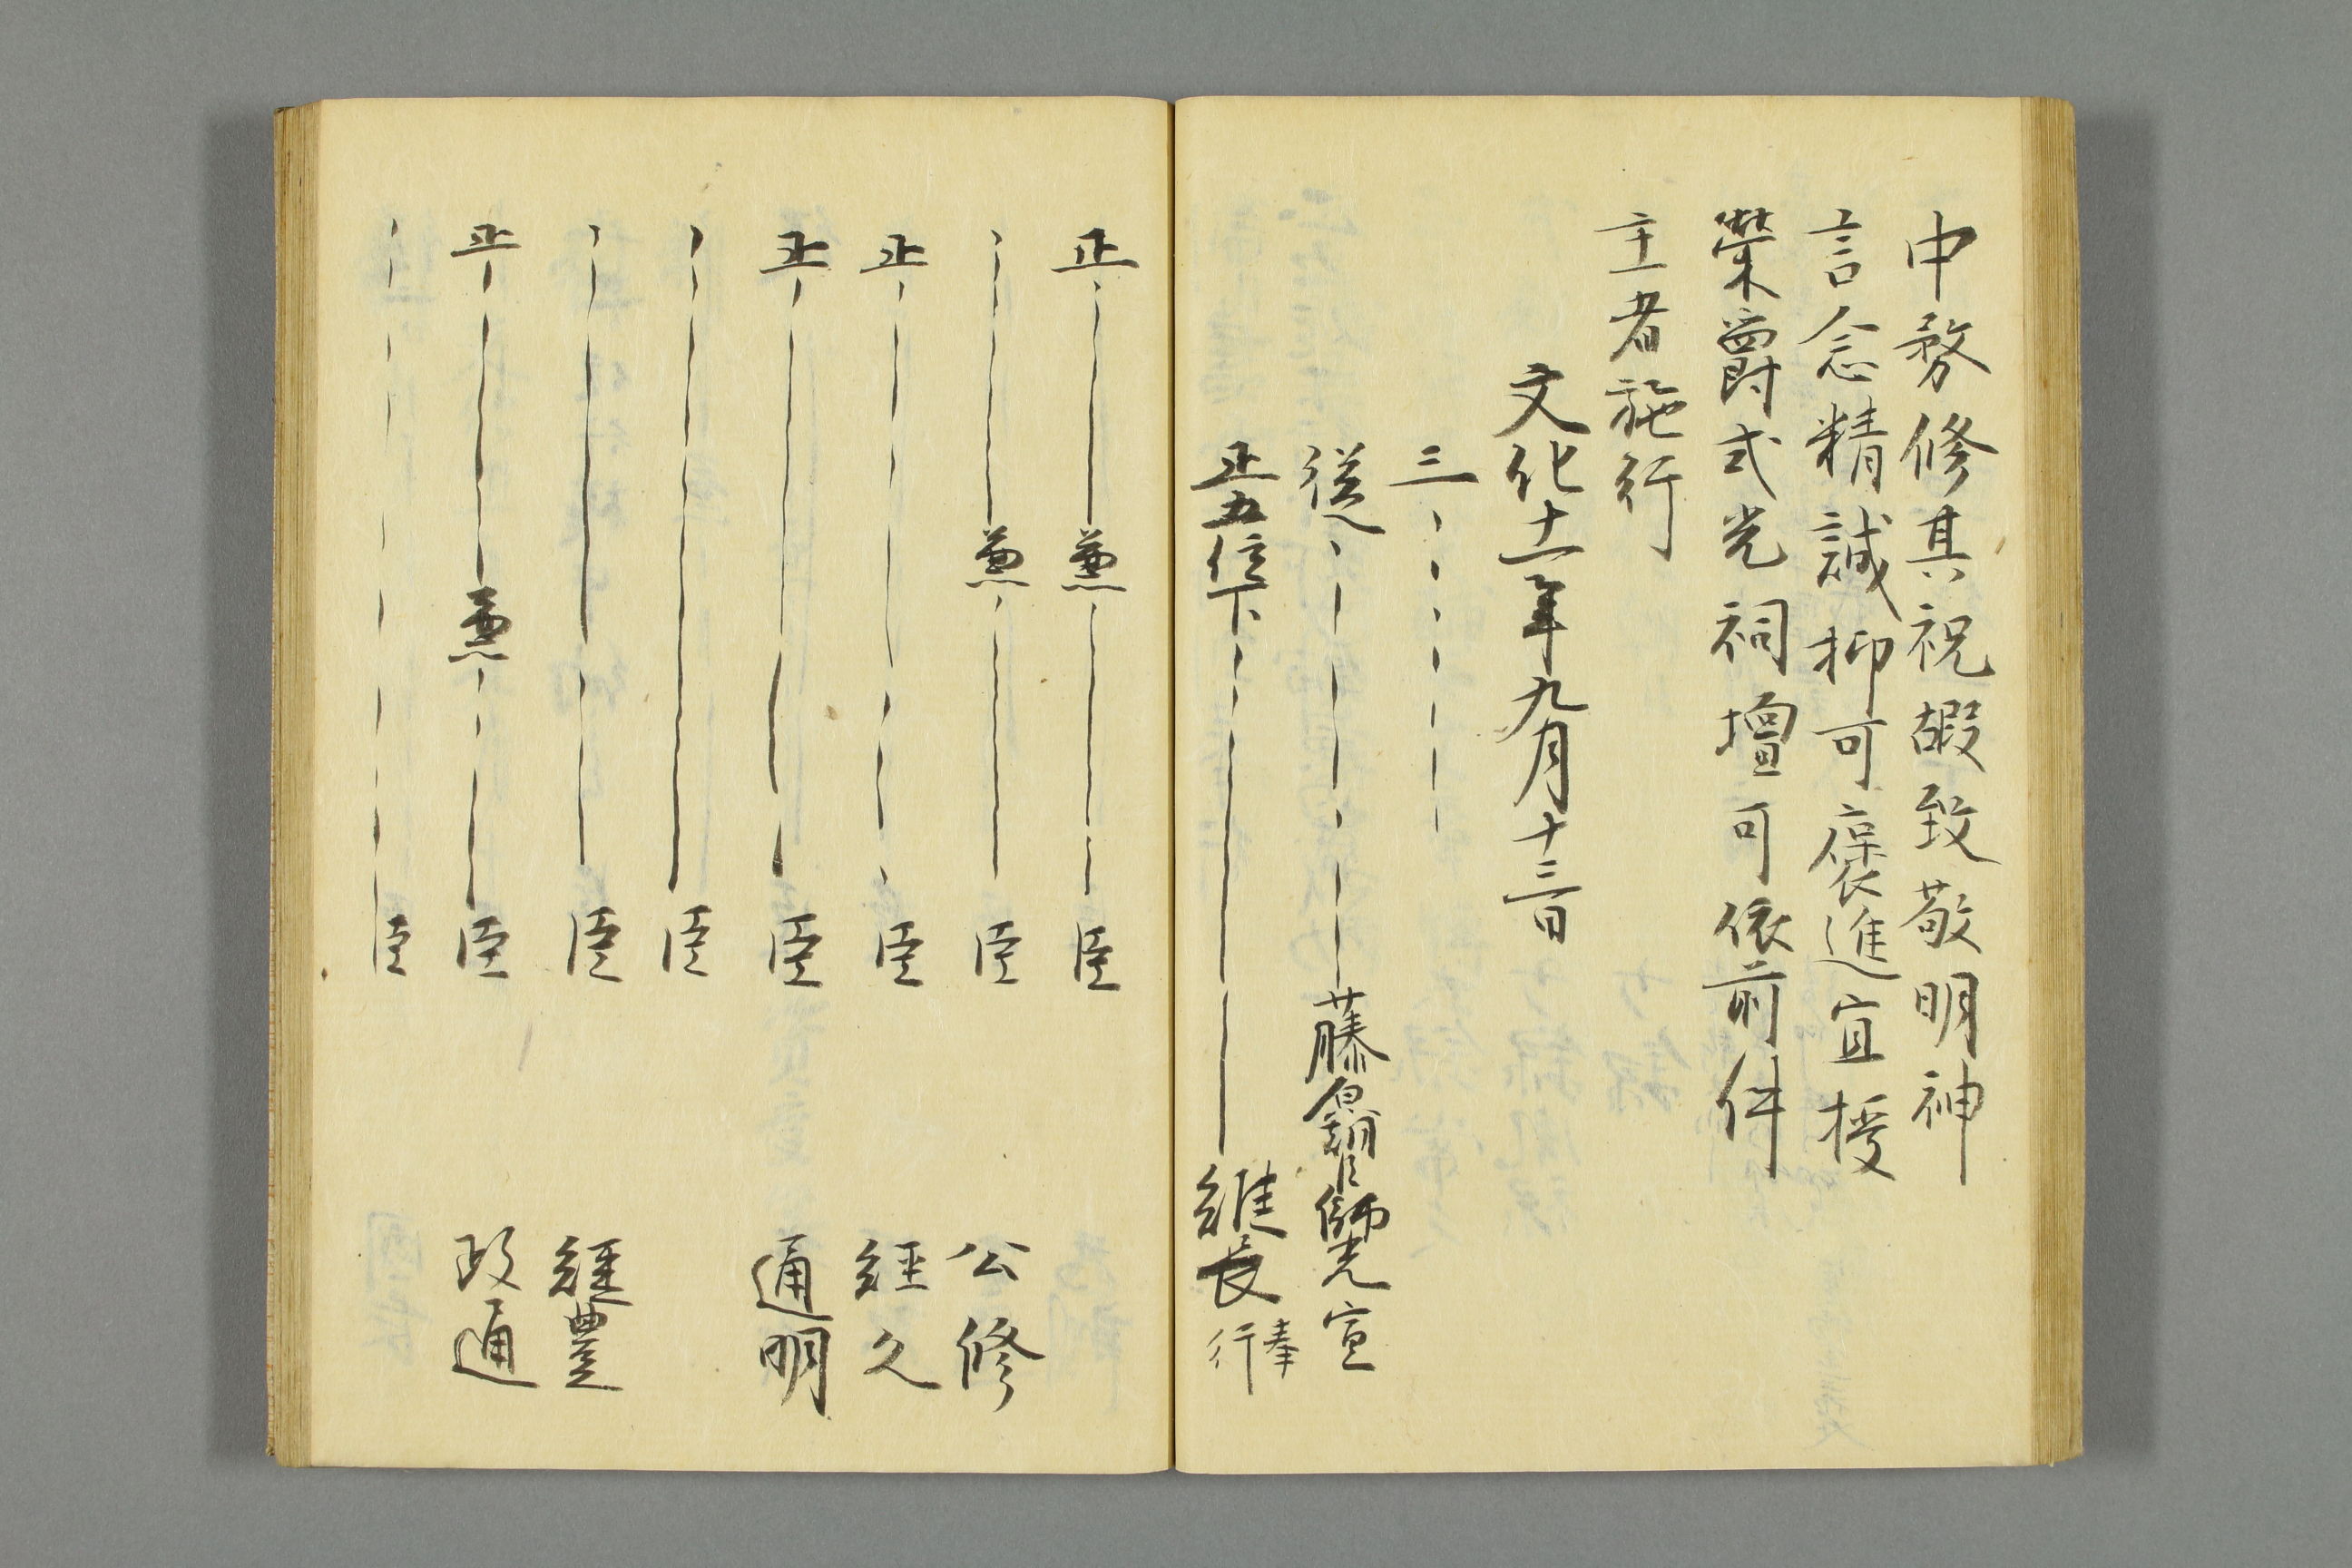 中務修其祝嘏致敬明神
言念精誠抑可褒進宜授
榮爵式光祠壇可依前件
主者施行
文化十一年九月十三日
三
従 藤 臣 光宣
正五位下 維長奉行
正 兼 臣
兼 臣 公修
正 臣 経久
正 臣 通明
臣
臣 経豊
正 兼 臣 政通
臣